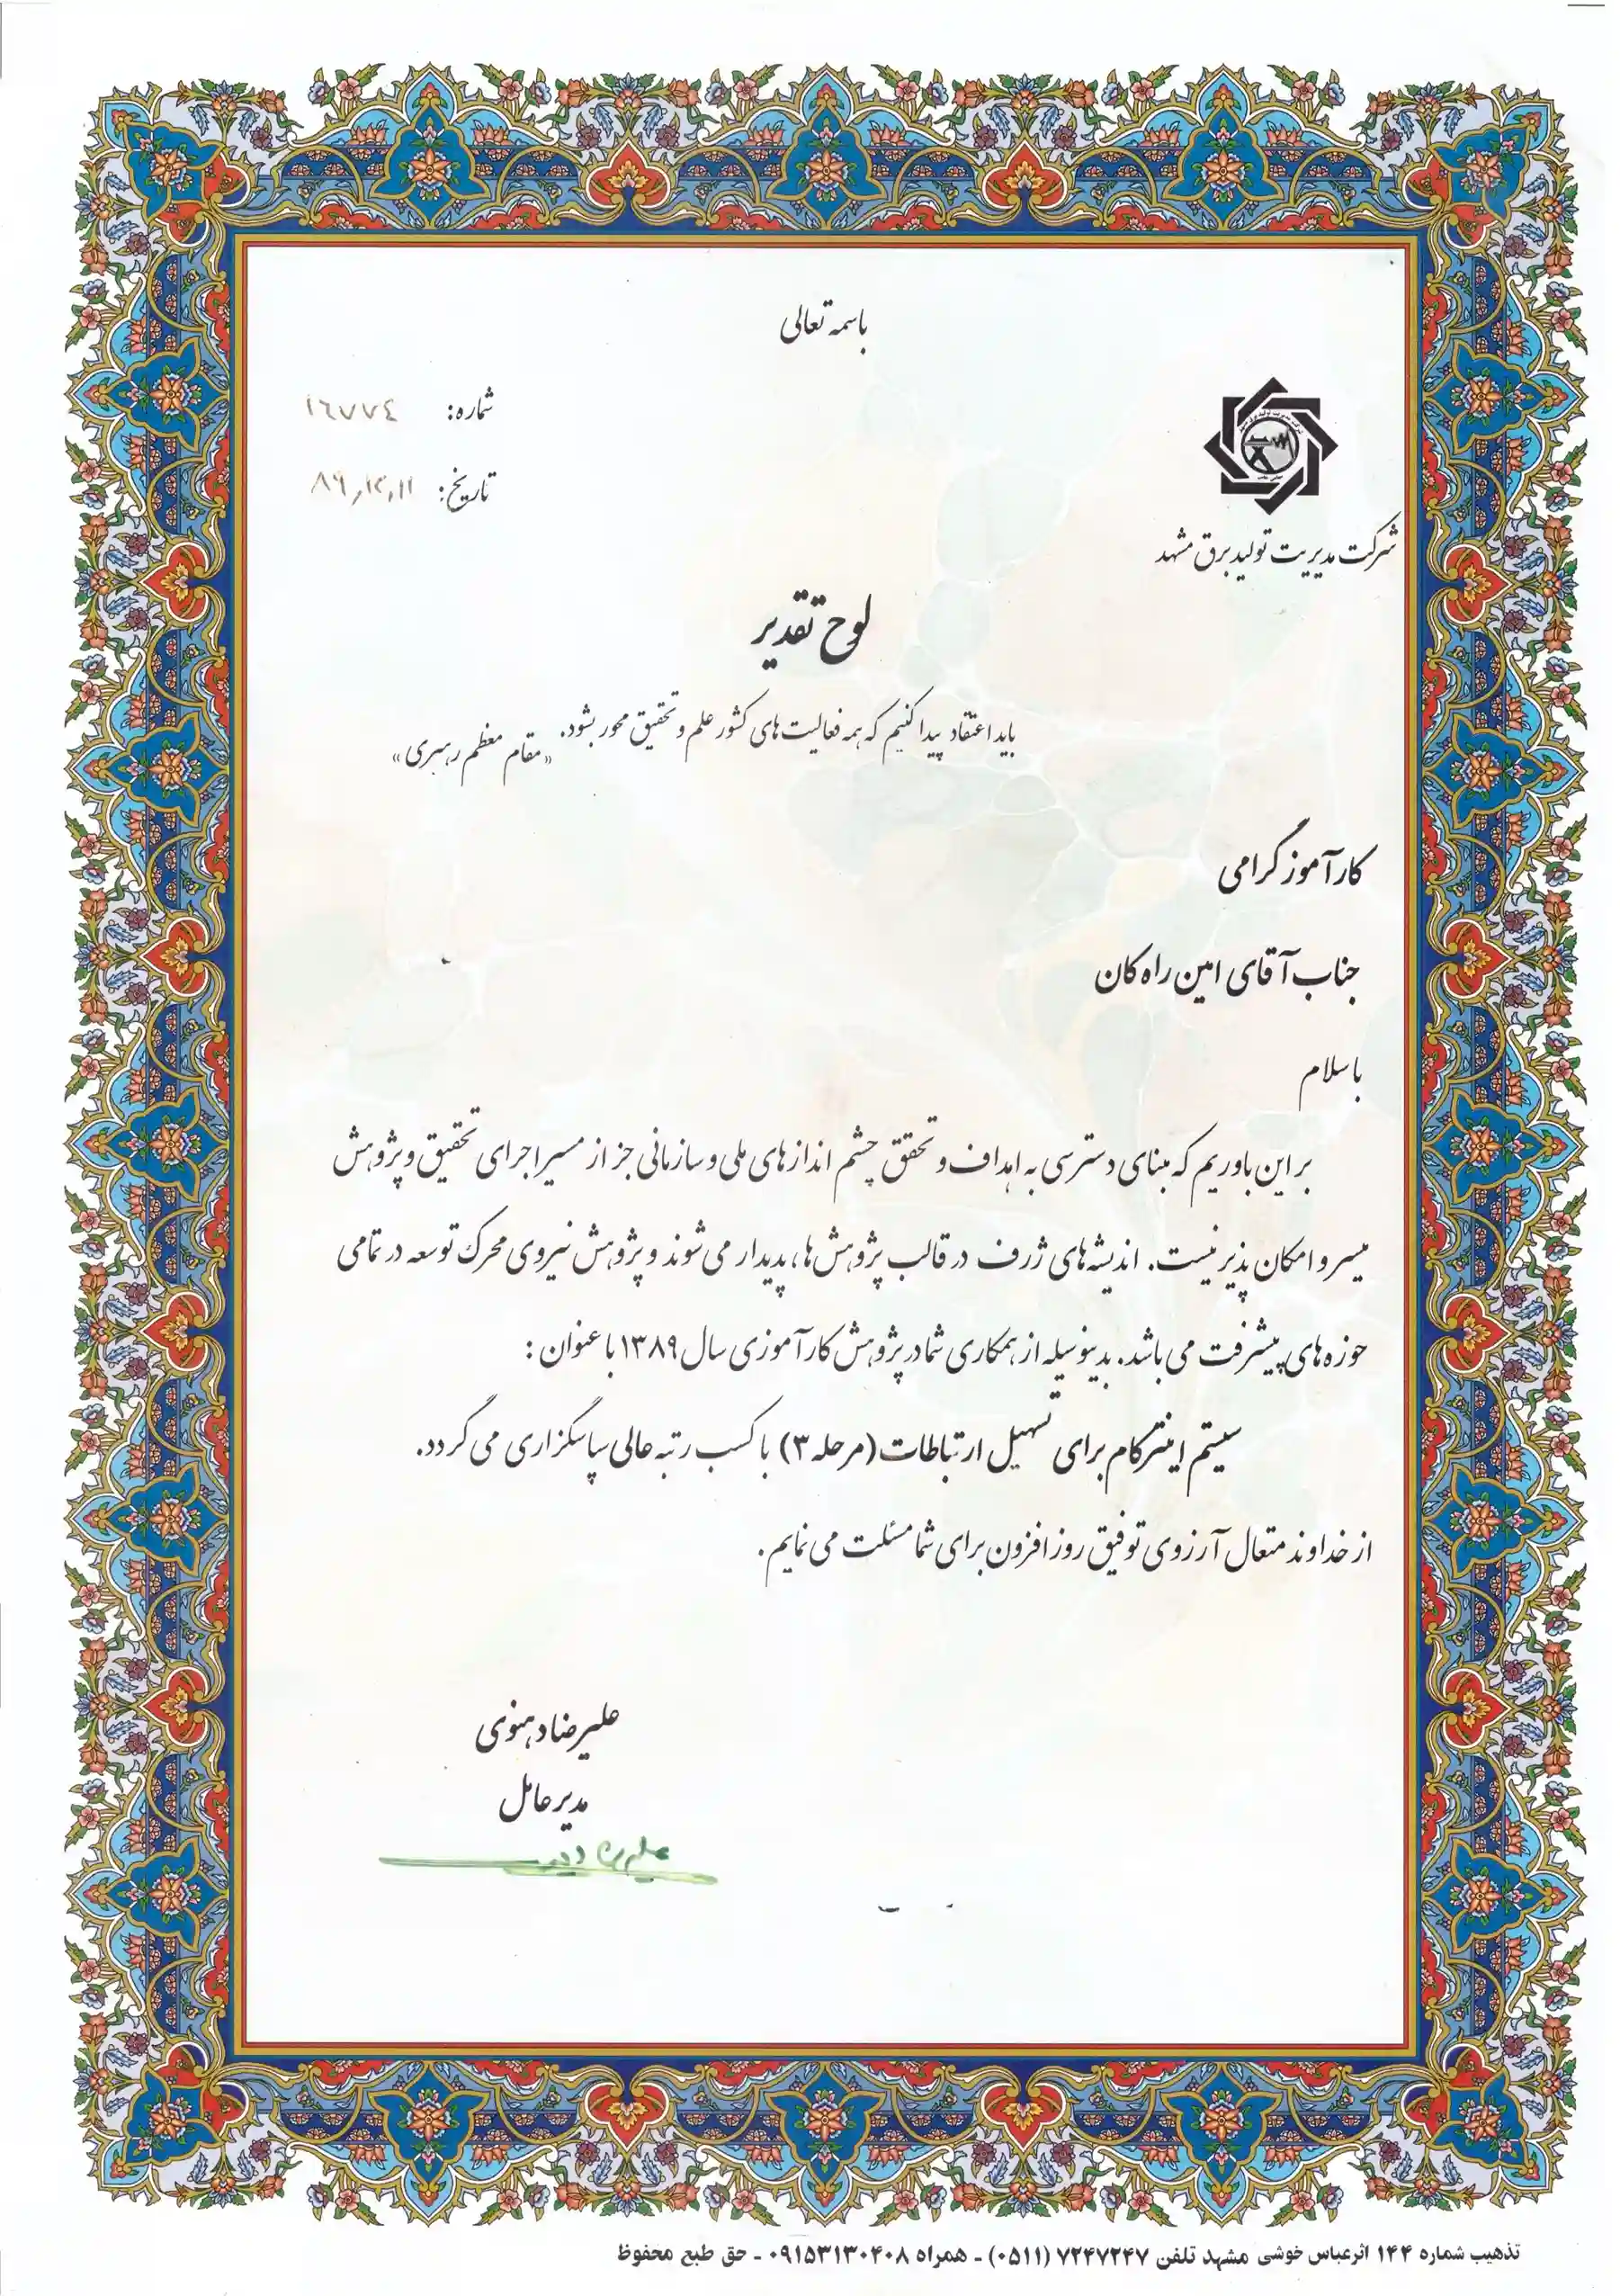 باسمه تعالی
شماره: ۱۶۷۷۴
تاریخ: ۸۹٫۱۲٫۱۱
شرکت مدیریت تولید برق مشهد
لوح تقدیر
باید اعتقاد پیدا کنیم که همه فعالیت های کشور علم و تحقیق محور بشود. «مقام معظم رهبری»
کارآموز گرامی
جناب آقای امین راه کان
با سلام
بر این باوریم که مبنای دسترسی به اهداف و تحقق چشم اندازهای ملی و سازمانی جز از مسیر اجرای تحقیق و پژوهش
میسر و امکان پذیر نیست. اندیشه‌های ژرف در قالب پژوهش‌ها، پدیدار می‌شوند و پژوهش نیروی محرک توسعه در تمامی
حوزه های پیشرفت می باشد. بدینوسیله از همکاری شما در پژوهش کارآموزی سال ۱۳۸۹ با عنوان :
سیستم اینترکام برای تسهیل ارتباطات (مرحله ۳) با کسب رتبه عالی سپاسگزاری می گردد.
از خداوند متعال آرزوی توفیق روزافزون برای شما مسئلت می نمایم.
علیرضا دهنوی
مدیر عامل
تذهیب شماره ۱۴۴ اثرعباس خوشی مشهد تلفن ۷۲۴۷۲۴۷ (۰۵۱۱) - همراه ۰۹۱۵۳۱۳۰۴۰۸ - حق طبع محفوظ